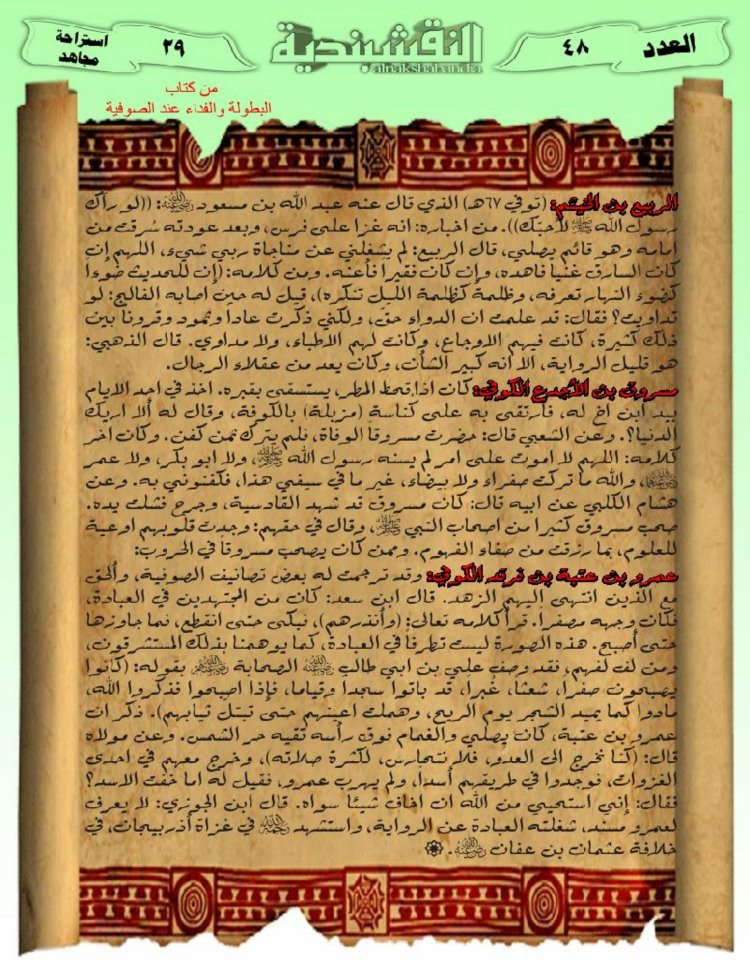 العدد
٤٨
النقشبندية
alnakshabandia
٢٩
استراحة
مجاهد
من كتاب
البطولة والفداء عند الصوفية
الربيع بن الخيثم: (توفي ٦٧هـ) الذي قال عنه عبد الله بن مسعود رضي الله عنه: ((لو رآك
رسول الله ﷺ لأحبك)). من اخباره: انه غزا على فرس، وبعد عودته سرقت من
امامه وهو قائم يصلي، قال الربيع: لم يشغلني عن مناجاة ربي شيء، اللهم إن
كان السارق غنيا فاهده، وإن كان فقيرا فأعنه. ومن كلامه: (إن للحديث ضوءا
كضوء النهار تعرفه، وظلمة كظلمة الليل تنكره)، قيل له حين اصابه الفالج: لو
تداويت؟ فقال: قد علمت ان الدواء حق، ولكني ذكرت عادا وثمود وقرونا بين
ذلك كثيرة، كانت فيهم الاوجاع، وكانت لهم الأطباء، ولا مداوي. قال الذهبي:
هو قليل الرواية، الا انه كبير الشأن، وكان يعد من عقلاء الرجال.
مسروق بن الأجدع الكوفي: كان اذا قحط المطر، يستسقى بقبره. اخذ في احد الايام
بيد ابن اخ له، فارتقى به على كناسة (مزبلة) بالكوفة، وقال له ألا اريك
الدنيا؟. وعن الشعبي قال: حضرت مسروقا الوفاة، فلم يترك ثمن كفن. وكان اخر
كلامه: اللهم لا اموت على امر لم يسنه رسول الله ﷺ، ولا ابو بكر، ولا عمر
رضي الله عنهما، والله ما تركت صفراء ولا بيضاء، غير ما في سيفي هذا، فكفنوني به. وعن
هشام الكلبي عن ابيه قال: كان مسروق قد شهد القادسية، وجرح فشلت يده.
صحب مسروق كثيرا من اصحاب النبي ﷺ، وقال في حقهم: وجدت قلوبهم اوعية
للعلوم، بما رزقت من صفاء الفهوم. وممن كان يصحب مسروقا في الحروب:
عمرو بن عتبة بن فرقد الكوفي: وقد ترجمت له بعض تصانيف الصوفية، وألحق
مع الذين انتهى إليهم الزهد. قال ابن سعد: كان من المجتهدين في العبادة،
فكان وجهه مصفرا. قرأ كلامه تعالى: (وأنذرهم)، فبكى حتى انقطع، نما جاوزها
حتى أصبح. هذه الصورة ليست تطرفا في العبادة، كما يوهمنا بذلك المستشرقون،
ومن لف لفهم، فقد وصف علي بن ابي طالب رضي الله عنه الصحابة رضي الله عنهم بقوله: (كانوا
يصبحون صفرا، شعثا، غبرا، قد باتوا سجدا وقياما، فإذا اصبحوا فذكروا الله،
مادوا كما يميد الشجر يوم الريح، وهملت اعينهم حتى تبتل ثيابهم). ذكر ان
عمرو بن عتبة، كان يصلي والغمام نوق رأسه تقيه حر الشمس. وعن مولاه
قال: (كنا نخرج الى العدو، فلا نتحارس، لكثرة صلاته)، وخرج معهم في احدى
الغزوات، فوجدوا في طريقهم أسدا، ولم يهرب عمرو، فقيل له اما خفت الاسد؟
فقال: إني استحيي من الله ان اخاف شيئا سواه. قال ابن الجوزي: لا يعرف
لعمرو مسند، شغلته العبادة عن الرواية، واستشهد رحمه الله في غزاة أذربيجان، في
خلافة عثمان بن عفان رضي الله عنه.